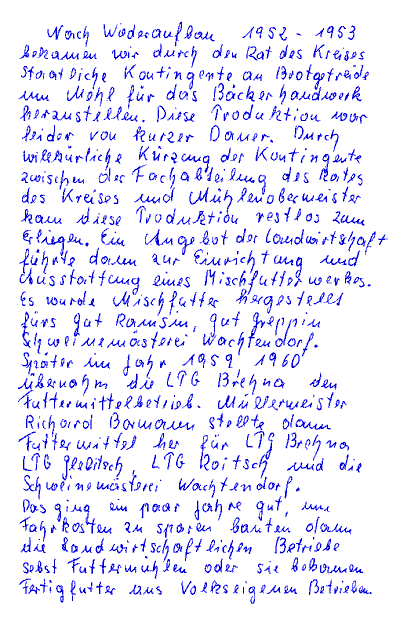 Nach Wiederaufbau 1952 - 1953
bekamen wir durch den Rat des Kreises
staatliche Kontingente an Brotgetreide
um Mehl für das Bäckerhandwerk
herzustellen. Diese Produktion war
leider von kurzer Dauer. Durch
willkürliche Kürzung der Kontingente
zwischen der Fachabteilung des Rates
des Kreises und Mühlenobermeister
kam diese Produktion restlos zum
Erliegen. Ein Angebot der Landwirtschaft
führte dann zur Einrichtung und
Ausstattung eines Mischfutterwerkes.
Es wurde Mischfutter hergestellt
fürs Gut Ramsin, Gut Greppin
Schweinemästerei Wachtendorf.
Später im Jahr 1959 1960
übernahm die LTG Brehna den
Futtermittelbetrieb. Müllermeister
Richard Bormann stellte dann
Futtermittel her für LTG Brehna
LTG Glebitsch, LTG Roitsch und die
Schweinemästerei Wachtendorf.
Das ging ein paar Jahre gut, um
Fahrkosten zu sparen bauten dann
die Landwirtschaftlichen Betriebe
selbst Futtermühlen oder sie bekamen
Fertigfutter aus Volkseigenen Betrieben.